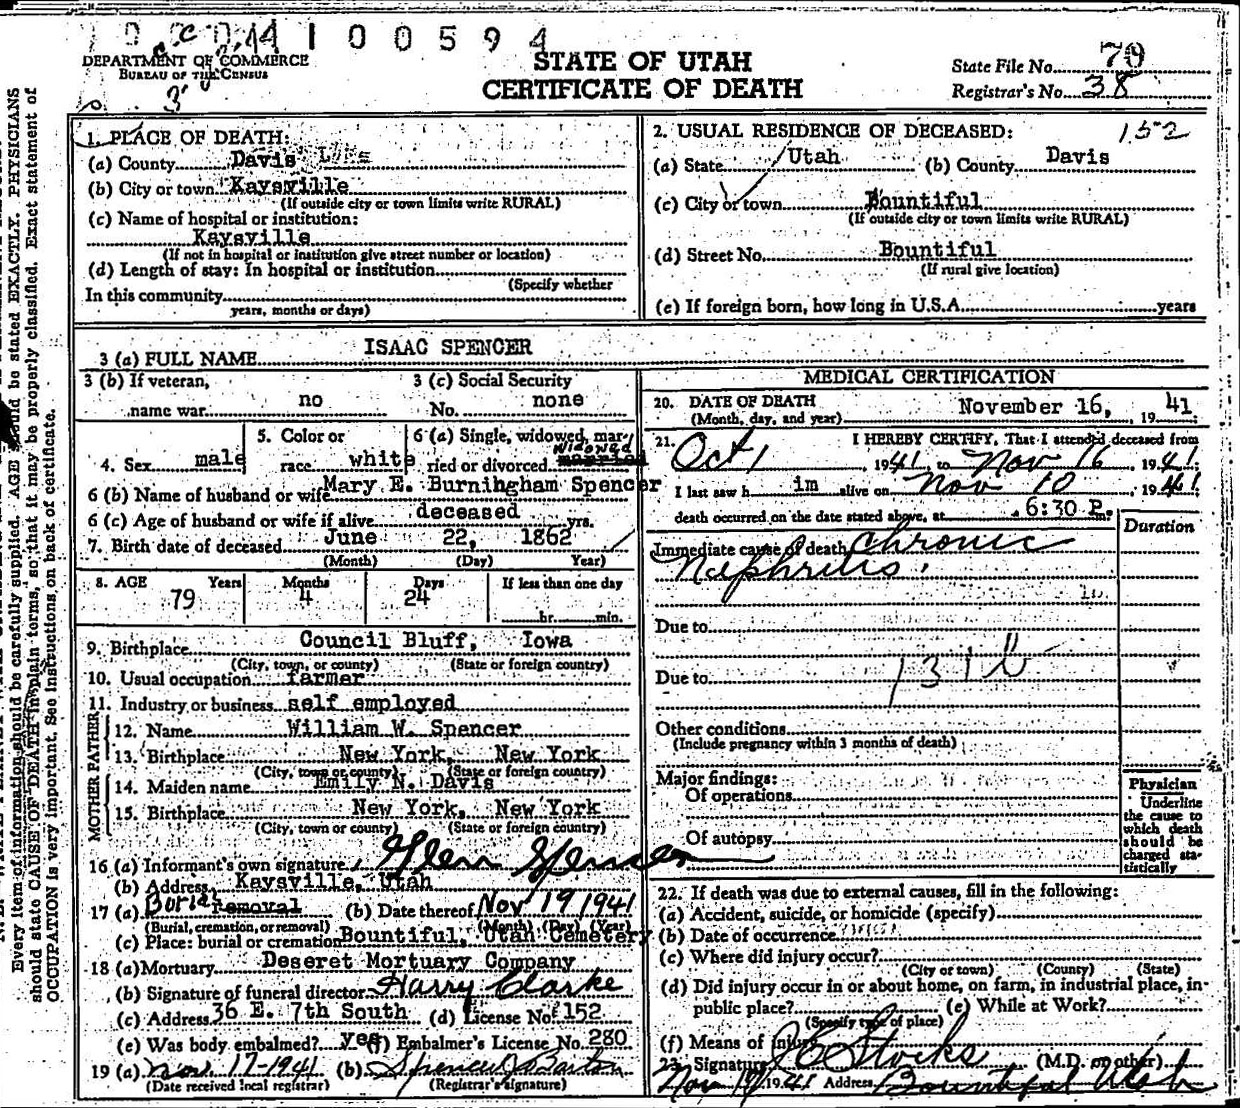 1 0 0 5 9 4
DEPARTMENT OF COMMERCE
BUREAU OF THE CENSUS
STATE OF UTAH
CERTIFICATE OF DEATH
State File No. 79
Registrar's No. 38
1. PLACE OF DEATH:
(a) County Davis
(b) City or town Kaysville
(If outside city or town limits write RURAL)
(c) Name of hospital or institution:
Kaysville
(If not in hospital or institution give street number or location)
(d) Length of stay: In hospital or institution
(Specify whether
In this community
years, months or days)
2. USUAL RESIDENCE OF DECEASED: 152
(a) State Utah (b) County Davis
(c) City or town Bountiful
(If outside city or town limits write RURAL)
(d) Street No. Bountiful
(If rural give location)
(e) If foreign born, how long in U.S.A. years
3 (a) FULL NAME ISAAC SPENCER
3 (b) If veteran, name war no
3 (c) Social Security No. none
4. Sex male
5. Color or race white
6 (a) Single, widowed, married or divorced widowed married
6 (b) Name of husband or wife Mary E. Burningham Spencer
6 (c) Age of husband or wife if alive deceased yrs.
7. Birth date of deceased June 22, 1862
(Month) (Day) Year)
8. AGE Years Months Days If less than one day
79 4 24 hr. min.
9. Birthplace Council Bluff, Iowa
(City, town, or county) (State or foreign country)
10. Usual occupation farmer
11. Industry or business self employed
FATHER
12. Name William W. Spencer
13. Birthplace New York, New York
(City, town or county) (State or foreign country)
MOTHER
14. Maiden name Emily N. Davis
15. Birthplace New York, New York
(City, town or county) (State or foreign country)
16 (a) Informant's own signature Glen Spencer
(b) Address Kaysville, Utah
17 (a) Burial removal (b) Date thereof Nov 19 1941
(Burial, cremation, or removal) (Month) (Day) (Year)
(c) Place: burial or cremation Bountiful, Utah Cemetery
18 (a) Mortuary Deseret Mortuary Company
(b) Signature of funeral director Harry Clarke
(c) Address 36 E. 7th South (d) License No. 152
(e) Was body embalmed? yes (f) Embalmer's License No. 280
19 (a) Nov 17-1941 (b) Spencer J. Barton
(Date received local registrar) (Registrar's signature)
MEDICAL CERTIFICATION
20. DATE OF DEATH
(Month, day, and year) November 16, 19 41
21. I HEREBY CERTIFY, That I attended deceased from
Oct 1 1941 to Nov 16, 1941
I last saw h im alive on Nov 10, 1941
death occurred on the date stated above, at 6:30 P. m.
Duration
Immediate cause of death Chronic
Nephritis.
Due to
131b
Due to
Other conditions
(Include pregnancy within 3 months of death)
Major findings:
Of operations
Of autopsy
Physician
Underline
the cause to
which death
should be
charged sta-
tistically
22. If death was due to external causes, fill in the following:
(a) Accident, suicide, or homicide (specify)
(b) Date of occurrence
(c) Where did injury occur?
(City or town) (County) (State)
(d) Did injury occur in or about home, on farm, in industrial place, in-
public place? (e) While at Work?
(Specify type of place)
(f) Means of injury
23. Signature Stocks (M.D. or other)
Nov 19 1941 Address Bountiful Utah
Every item of information should be carefully supplied. AGE should be stated EXACTLY. PHYSICIANS
should state CAUSE OF DEATH in plain terms, so that it may be properly classified. Exact statement of
OCCUPATION is very important. See instructions on back of certificate.